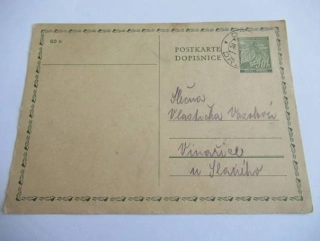 POSTKARTE
DOPISNICE
Slečna
Vlastička
Vinařice
u Slaného